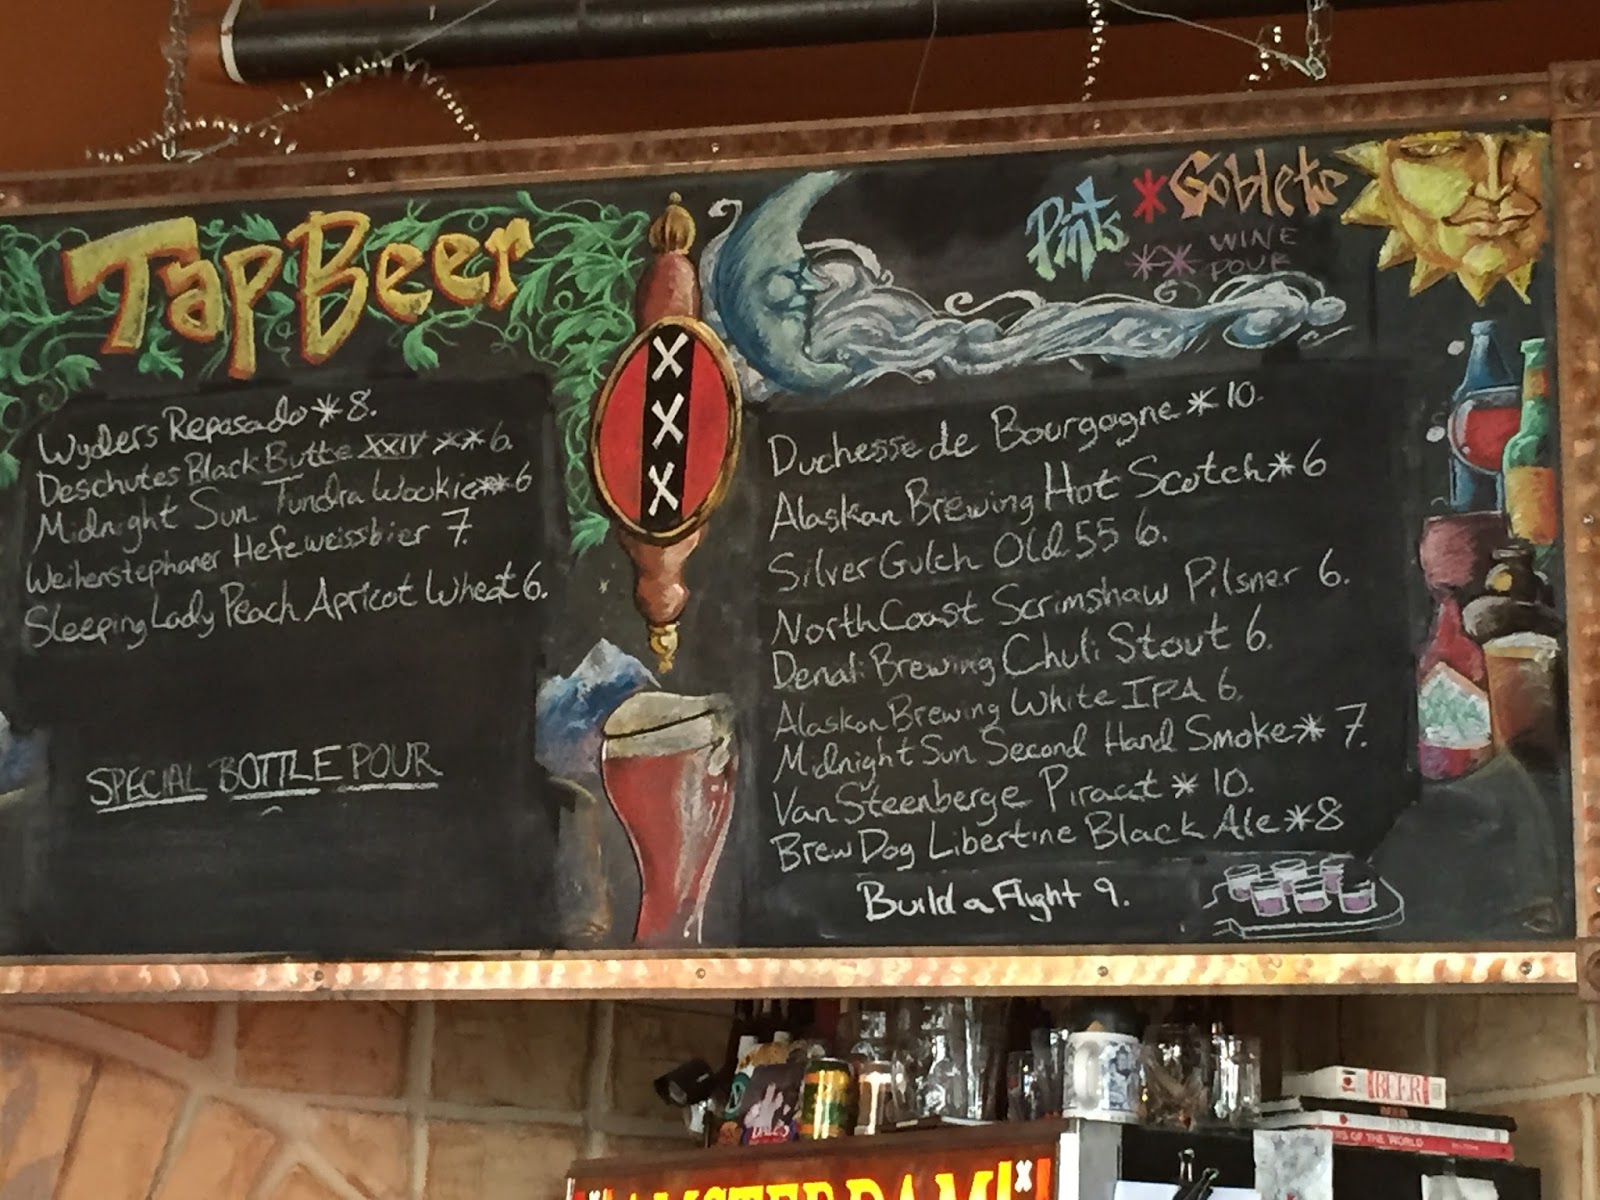 Tap Beer
Wyders Reposado * 8.
Deschutes Black Butte XXIV ** 6.
Midnight Sun Tundra Wookie ** 6
Weihenstephaner Hefeweissbier 7.
Sleeping Lady Peach Apricot Wheat 6.
SPECIAL BOTTLE POUR
X
X
X
Pints * Goblets
** WINE
POUR
Duchesse de Bourgogne * 10.
Alaskan Brewing Hot Scotch * 6
Silver Gulch Old 55 6.
North Coast Scrimshaw Pilsner 6.
Denali Brewing Chuli Stout 6.
Alaskan Brewing White IPA 6.
Midnight Sun Second Hand Smoke * 7.
Van Steenberge Piraat * 10.
BrewDog Libertine Black Ale * 8
Build a Flight 9.
BEER
BEER
RS OF THE WORLD
AMSTERDAM